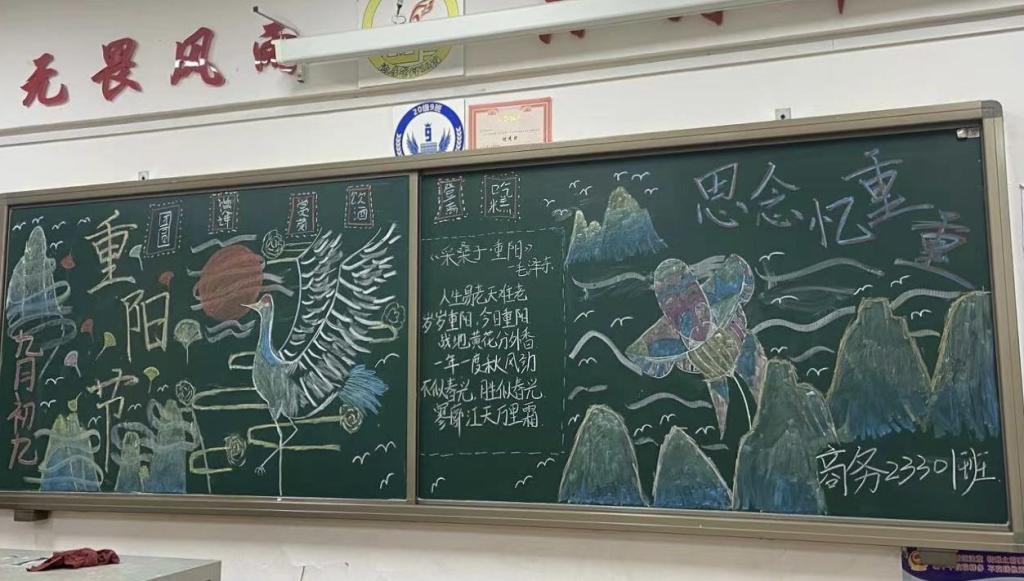 无畏风
20级9班
重阳节
九月初九
团圆
赏菊
饮酒
登高
吃糕
《采桑子·重阳》
毛泽东
人生易老天难老
岁岁重阳,今日重阳
战地黄花分外香
一年一度秋风劲
不似春光,胜似春光
寥廓江天万里霜
思念忆重重
商务23301班